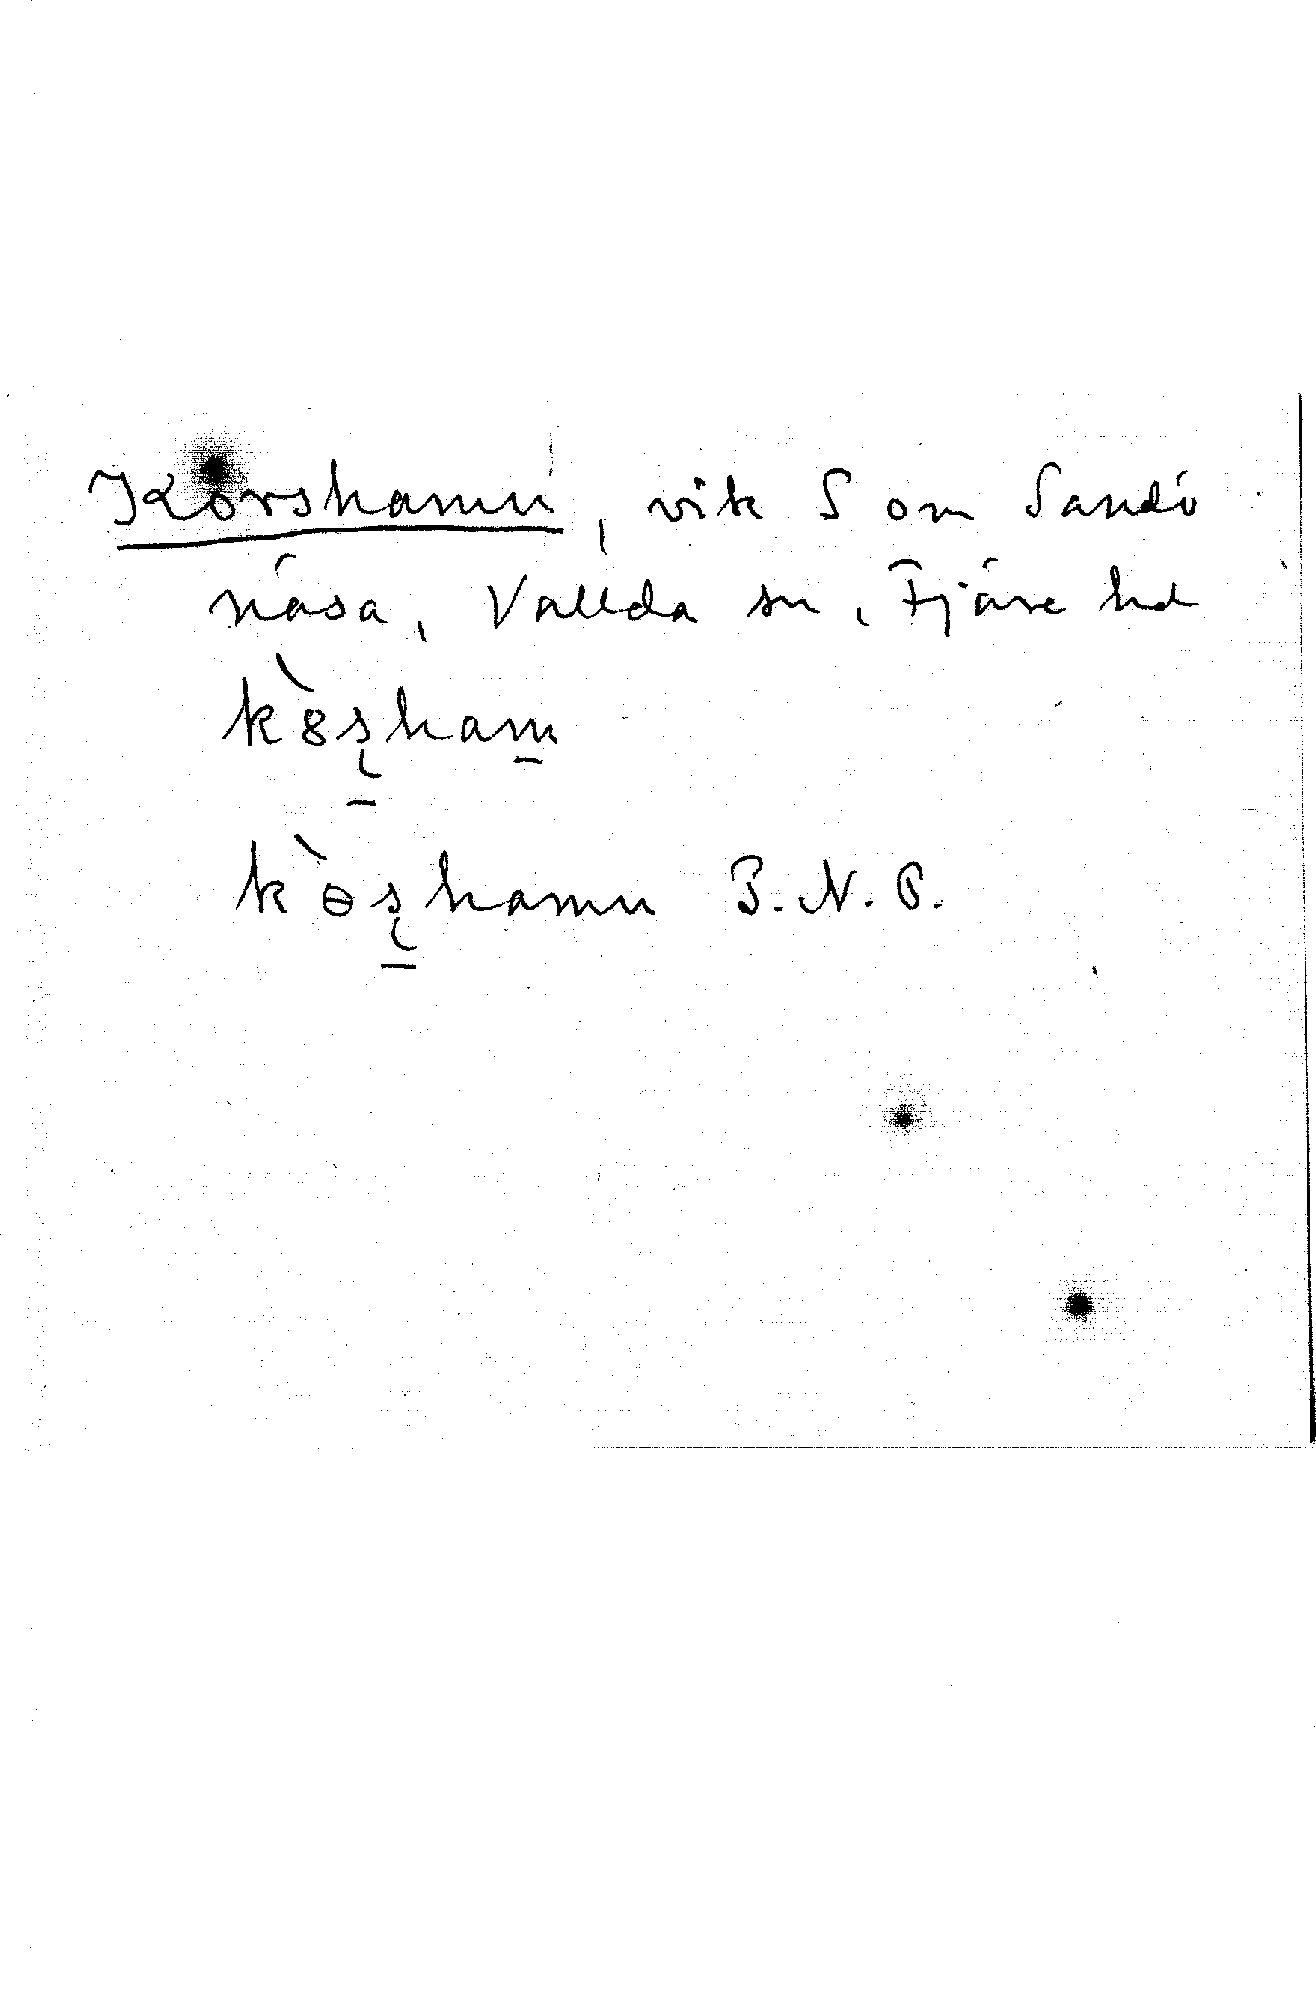 Korshamn, vik S om Sandö
näsa, Vallda sn, Fjäre hd
kò̀ȣʂham̲
kɵ̀ʂhamn P.N.P.